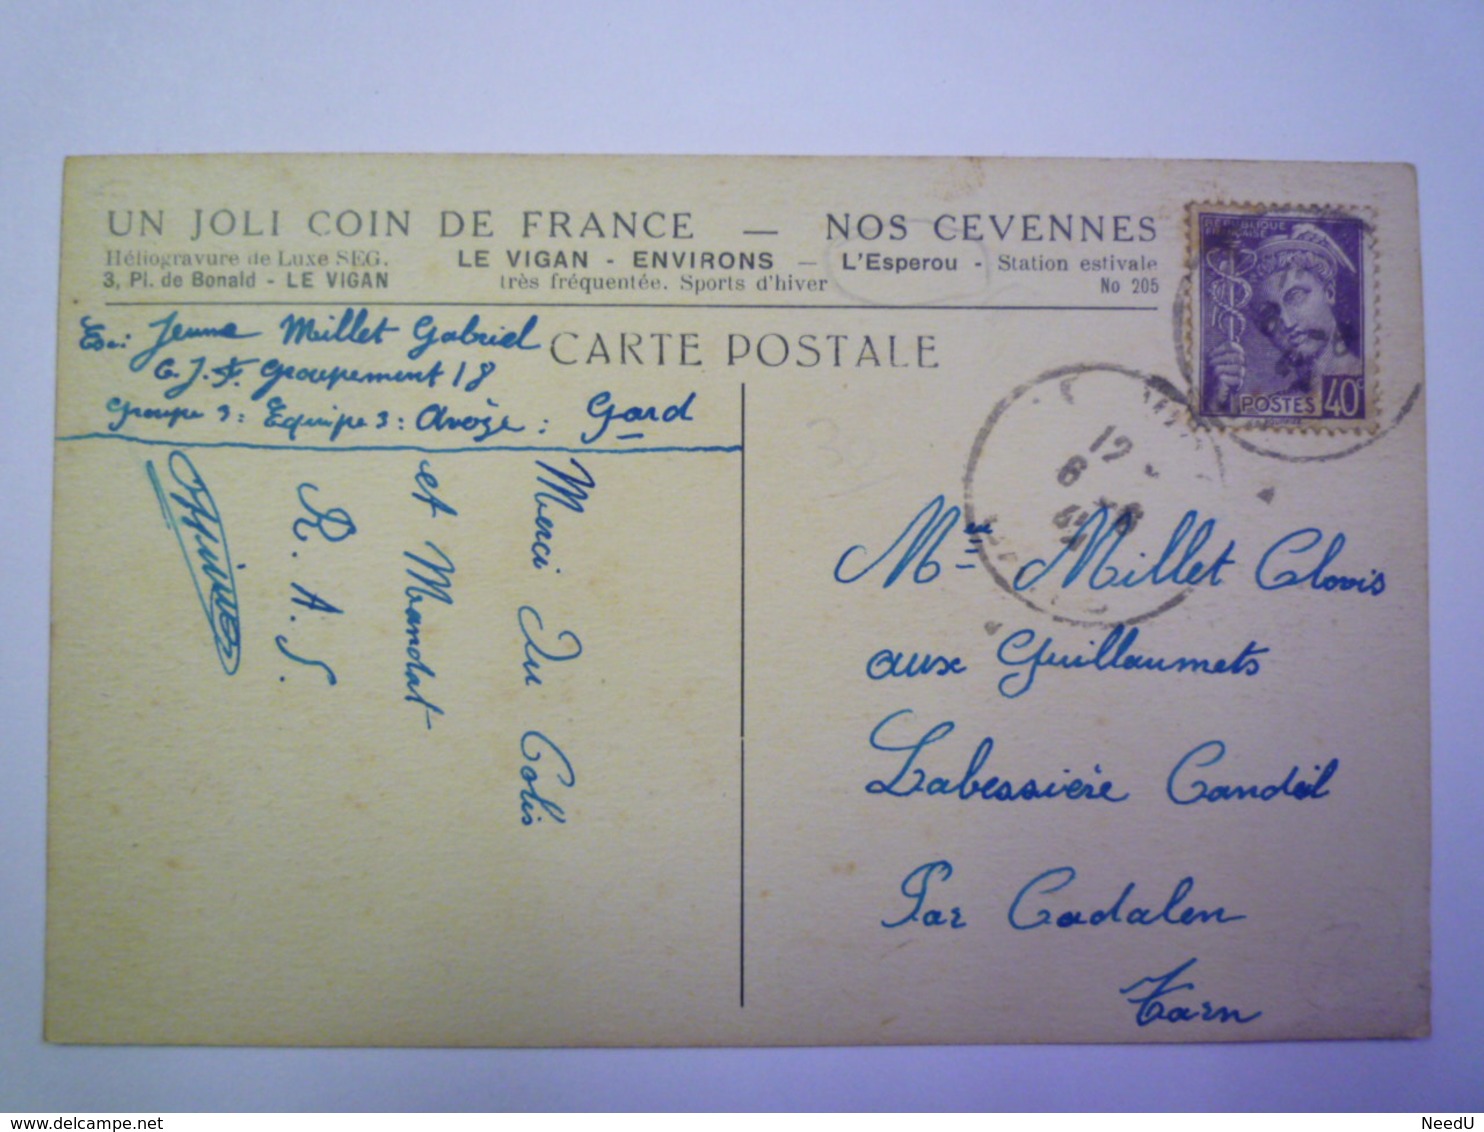 UN JOLI COIN DE FRANCE — NOS CEVENNES
Héliogravure de Luxe SEG. LE VIGAN - ENVIRONS — L'Esperou - Station estivale
3, Pl. de Bonald - LE VIGAN très fréquentée. Sports d'hiver No 205
Jeune Millet Gabriel
C.J.F. Groupement 18
Groupe 9: Equipe 3: Avèze: Gard
CARTE POSTALE
Merci Du Colis
et Mandat
R. A. S.
REPUBLIQUE
FRANÇAISE
POSTES 40c
12
6
Mr Millet Clovis
aux Guillaumets
Labessière Candeil
Par Cadalen
Tarn
NeedU